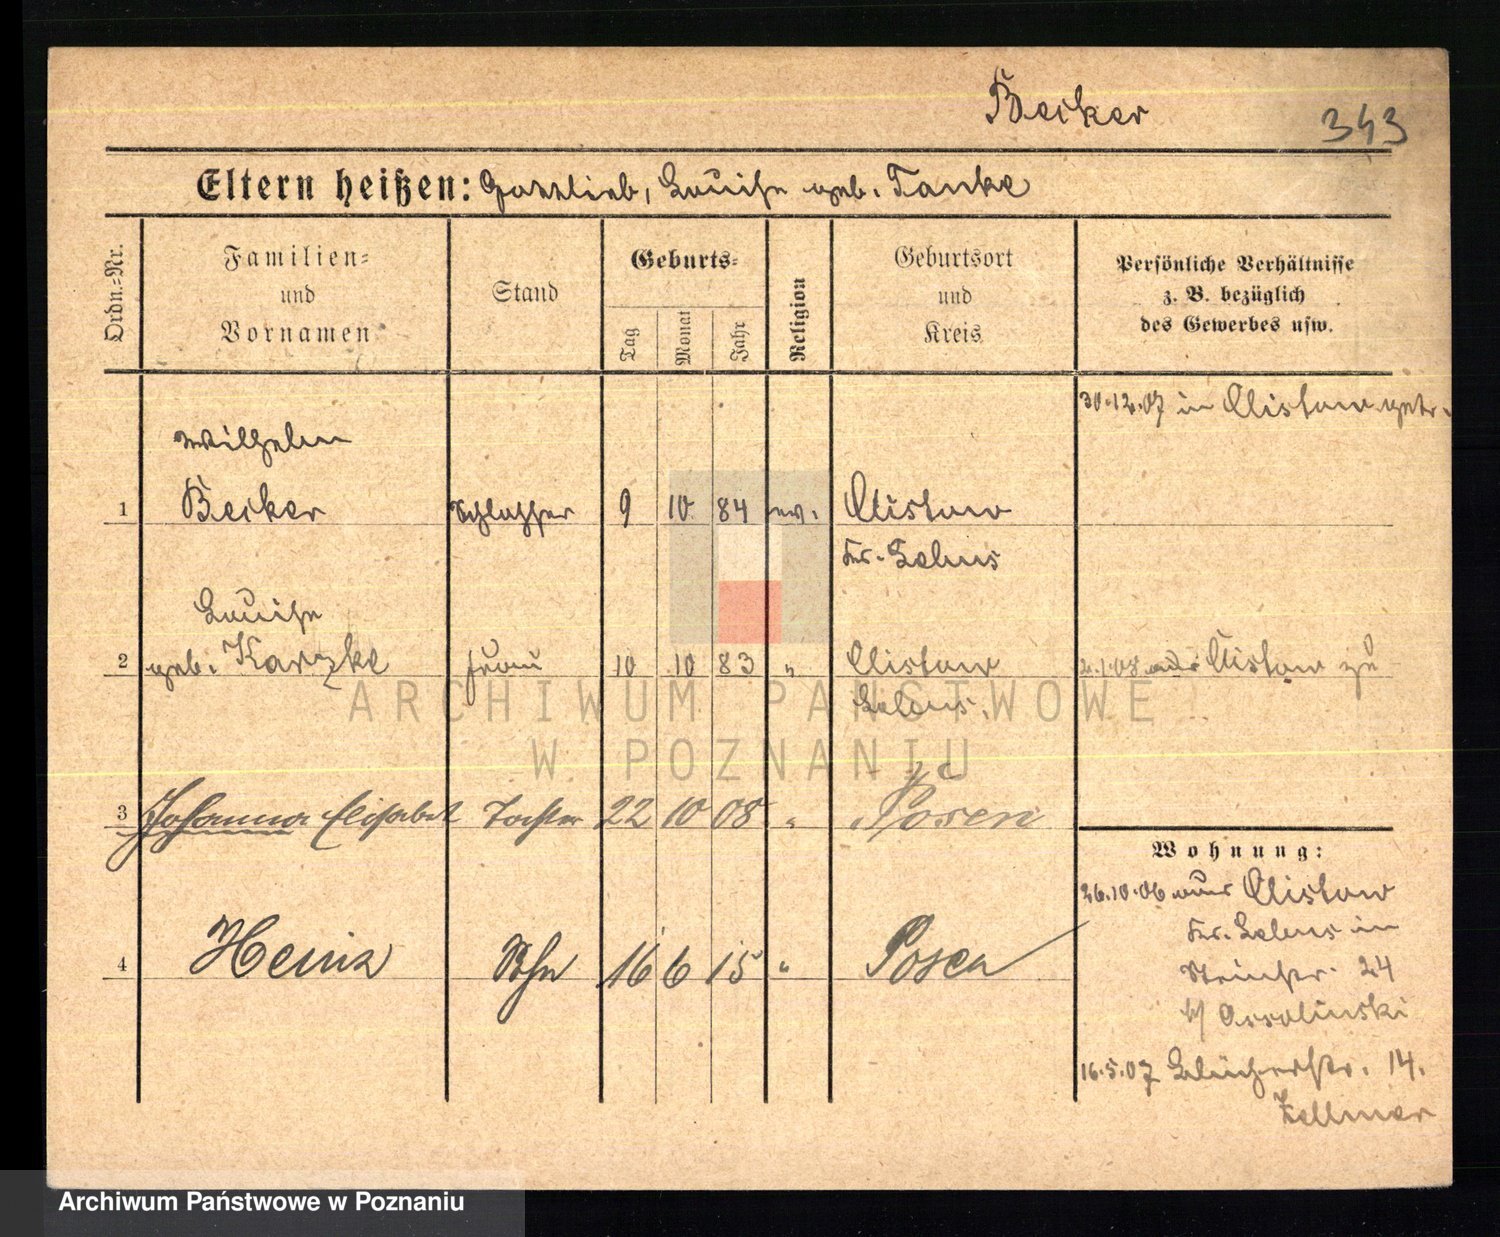 Becker
343
Eltern heißen: Gottlieb, Louise geb. Tanke
Ordn.-Nr.
Familien- und Vornamen
Stand
Geburts-
Tag
Monat
Jahr
Religion
Geburtsort und Kreis
Persönliche Verhältnisse
z. B. bezüglich
des Gewerbes usw.
30.12.07 in Clistow getr.
Wilhelm
1 Becker Schlosser 9 10 84 ev. Clistow
Kr. Lebus
Louise
2 geb. Karzke Frau 10 10 83 " Clistow 2.1.08 aus Clistow zu
Lebus.
3 Johanna Elisabet Tochter 22 10 08 " Posen
4 Heinz Sohn 16 6 15 " Posen
Wohnung:
26.10.06 aus Clistow
Kr. Lebus in
24
b/ Ossolinski
16.5.07 Blücherstr. 14.
Kellmer
ARCHIWUM PAŃSTWOWE
W POZNANIU
Archiwum Państwowe w Poznaniu